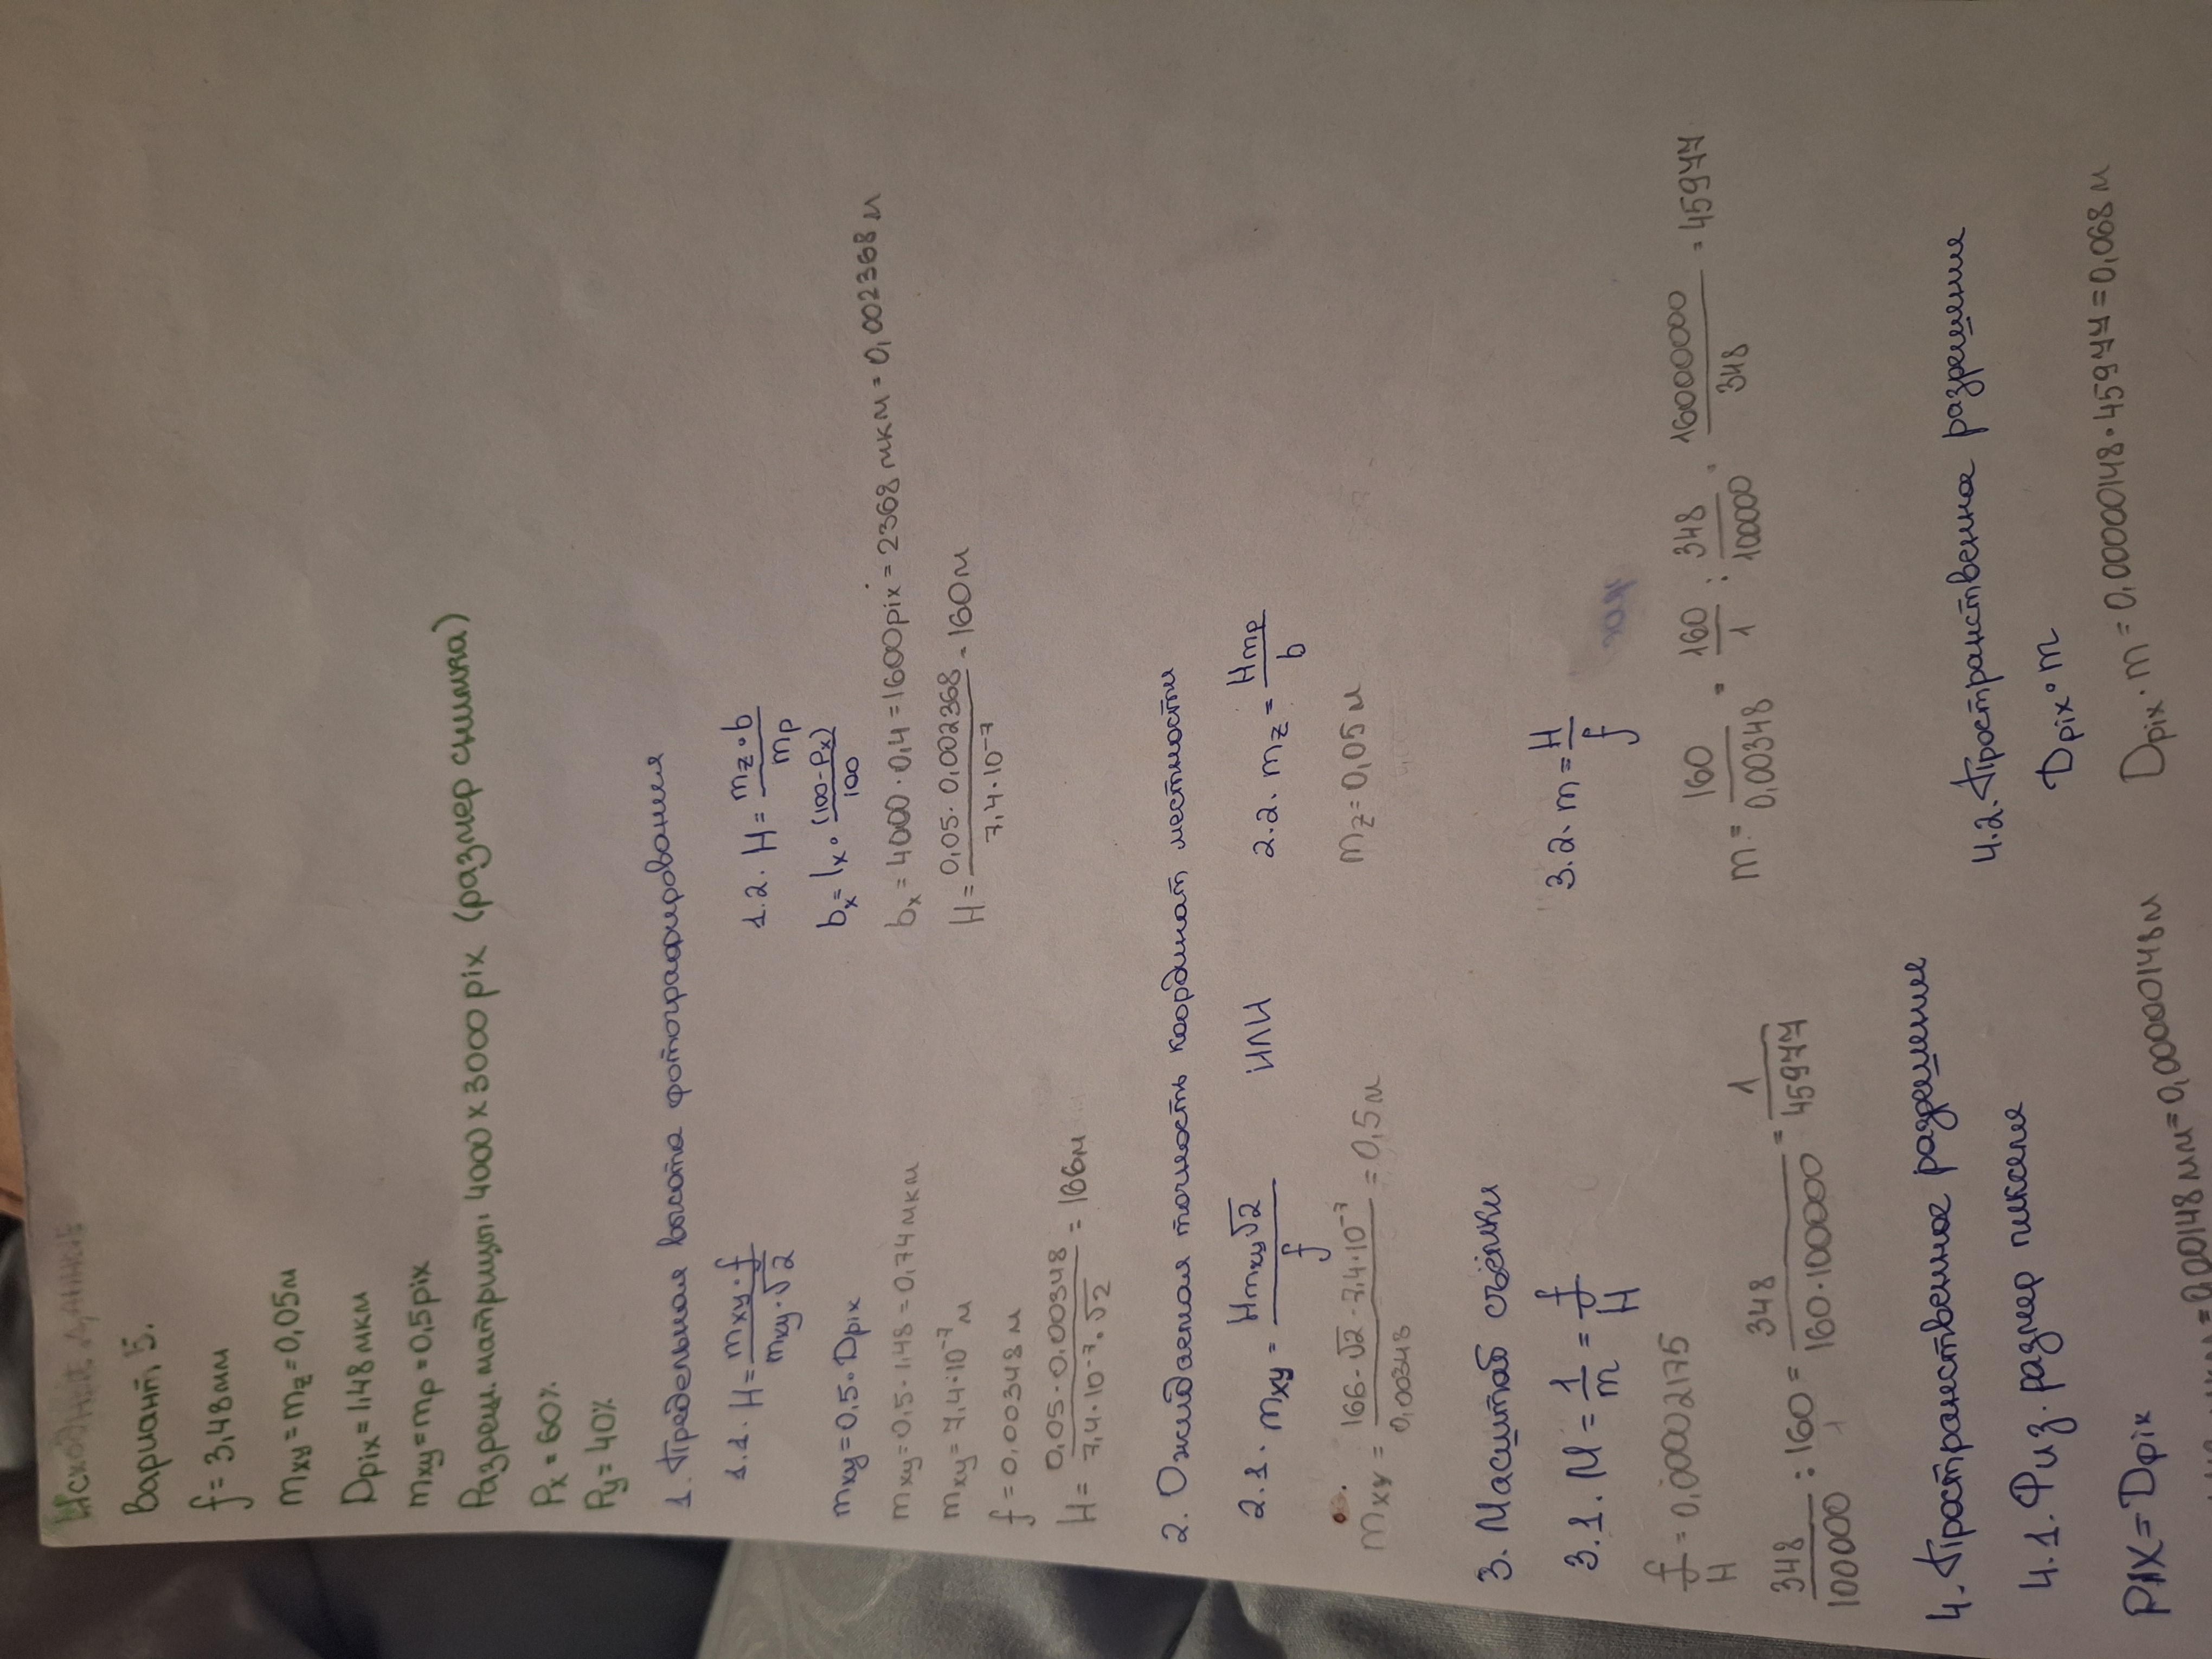 Исходные данные
Вариант 5.
f = 3,48 мм
mxy = mz = 0,05 м
Dpix = 1,48 мкм
mxy = mp = 0,5 pix
Разреш. матрицы: 4000 x 3000 pix (размер снимка)
Px = 60%
Py = 40%
1. Предельная высота фотографирования
1.1. H = mxy · f / mxy · √2
1.2. H = mz · b / mp
mxy = 0,5 · Dpix
bx = lx · (100 - Px) / 100
mxy = 0,5 · 1,48 = 0,74 мкм
bx = 4000 · 0,4 = 1600 pix = 2368 мкм = 0,002368 м
mxy = 7,4 · 10⁻⁷ м
H = 0,05 · 0,002368 / 7,4 · 10⁻⁷ = 160 м
f = 0,00348 м
H = 0,05 · 0,00348 / 7,4 · 10⁻⁷ · √2 = 166 м
2. Ожидаемая точность координат местности
2.1. mxy = Hmxy√2 / f ИЛИ 2.2. mz = Hmp / b
mxy = 166 · √2 · 7,4 · 10⁻⁷ / 0,00348 = 0,5 м
mz = 0,05 м
3. Масштаб съёмки
3.1. M = 1 / m = f / H
3.2. m = H / f
f / H = 0,00002175
m = 160 / 0,00348 = 160 / 1 : 348 / 10000 = 16000000 / 348 = 45977
348 / 100000 : 160 / 1 = 348 / 160 · 100000 = 1 / 45977
4. Пространственное разрешение
4.1. Физ. размер пикселя
4.2. Пространственное разрешение
Dpix · m
PIX = Dpix
Dpix · m = 0,00000148 · 45977 = 0,068 м
= 0,00148 мм = 0,00000148 м